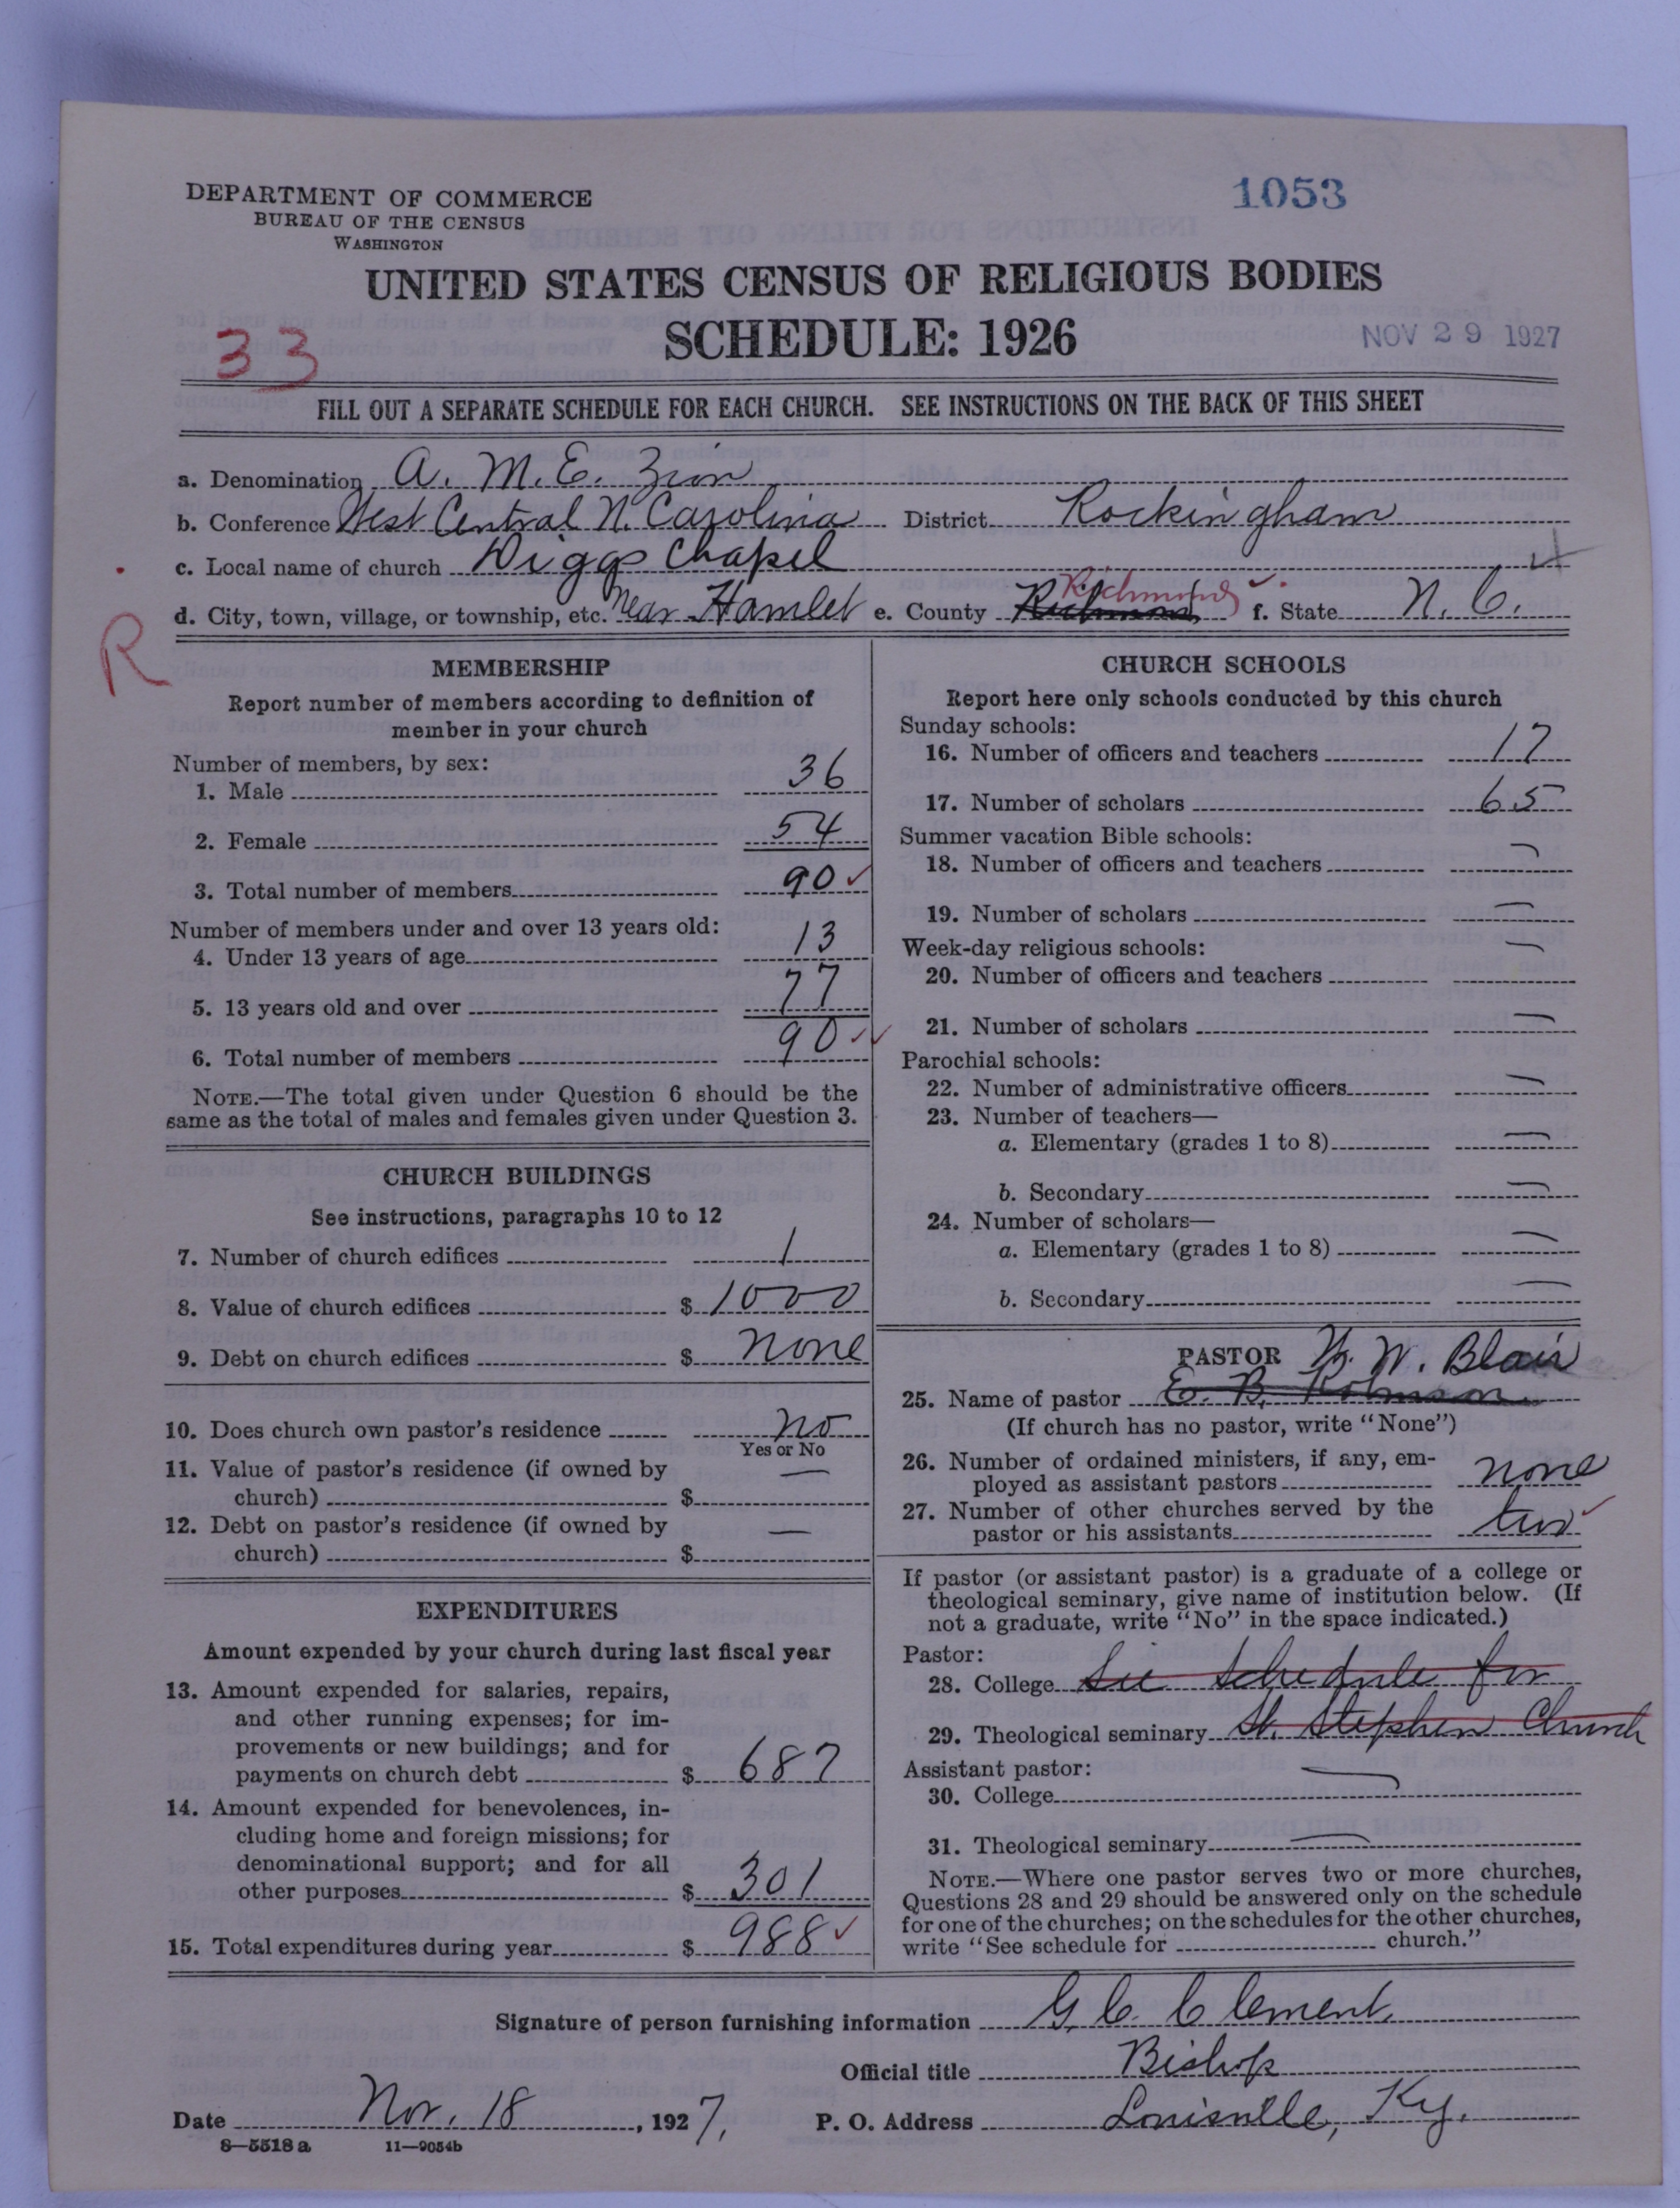 DEPARTMENT OF COMMERCE
BUREAU OF THE CENSUS
WASHINGTON
1053
UNITED STATES CENSUS OF RELIGIOUS BODIES
SCHEDULE: 1926
33
NOV 29 1927
FILL OUT A SEPARATE SCHEDULE FOR EACH CHURCH. SEE INSTRUCTIONS ON THE BACK OF THIS SHEET
a. Denomination A. M. E. Zion
b. Conference West Central N. Carolina District Rockingham
c. Local name of church Diggs Chapel
d. City, town, village, or township, etc. Near Hamlet e. County Richmond Richmond f. State N. C.
R
MEMBERSHIP
Report number of members according to definition of
member in your church
Number of members, by sex:
1. Male 36
2. Female 54
3. Total number of members 90
Number of members under and over 13 years old:
4. Under 13 years of age 13
5. 13 years old and over 77
6. Total number of members 90
NOTE.—The total given under Question 6 should be the
same as the total of males and females given under Question 3.
CHURCH BUILDINGS
See instructions, paragraphs 10 to 12
7. Number of church edifices 1
8. Value of church edifices $ 1000
9. Debt on church edifices $ none
10. Does church own pastor's residence no
Yes or No
11. Value of pastor's residence (if owned by
church) $ —
12. Debt on pastor's residence (if owned by
church) $ —
EXPENDITURES
Amount expended by your church during last fiscal year
13. Amount expended for salaries, repairs,
and other running expenses; for im-
provements or new buildings; and for
payments on church debt $ 687
14. Amount expended for benevolences, in-
cluding home and foreign missions; for
denominational support; and for all
other purposes $ 301
15. Total expenditures during year $ 988
CHURCH SCHOOLS
Report here only schools conducted by this church
Sunday schools:
16. Number of officers and teachers 17
17. Number of scholars 65
Summer vacation Bible schools:
18. Number of officers and teachers —
19. Number of scholars —
Week-day religious schools:
20. Number of officers and teachers —
21. Number of scholars —
Parochial schools:
22. Number of administrative officers —
23. Number of teachers—
a. Elementary (grades 1 to 8) —
b. Secondary —
24. Number of scholars—
a. Elementary (grades 1 to 8) —
b. Secondary —
PASTOR W. W. Blair
25. Name of pastor E. B. Robinson
(If church has no pastor, write "None")
26. Number of ordained ministers, if any, em-
ployed as assistant pastors none
27. Number of other churches served by the
pastor or his assistants two
If pastor (or assistant pastor) is a graduate of a college or
theological seminary, give name of institution below. (If
not a graduate, write "No" in the space indicated.)
Pastor:
28. College See schedule for
29. Theological seminary St. Stephen Church
Assistant pastor:
30. College —
31. Theological seminary —
NOTE.—Where one pastor serves two or more churches,
Questions 28 and 29 should be answered only on the schedule
for one of the churches; on the schedules for the other churches,
write "See schedule for church."
Signature of person furnishing information G. C. Clement.
Official title Bishop
Date Nov. 18, 1927. P. O. Address Louisville, Ky.
8—5518 a 11—9054b